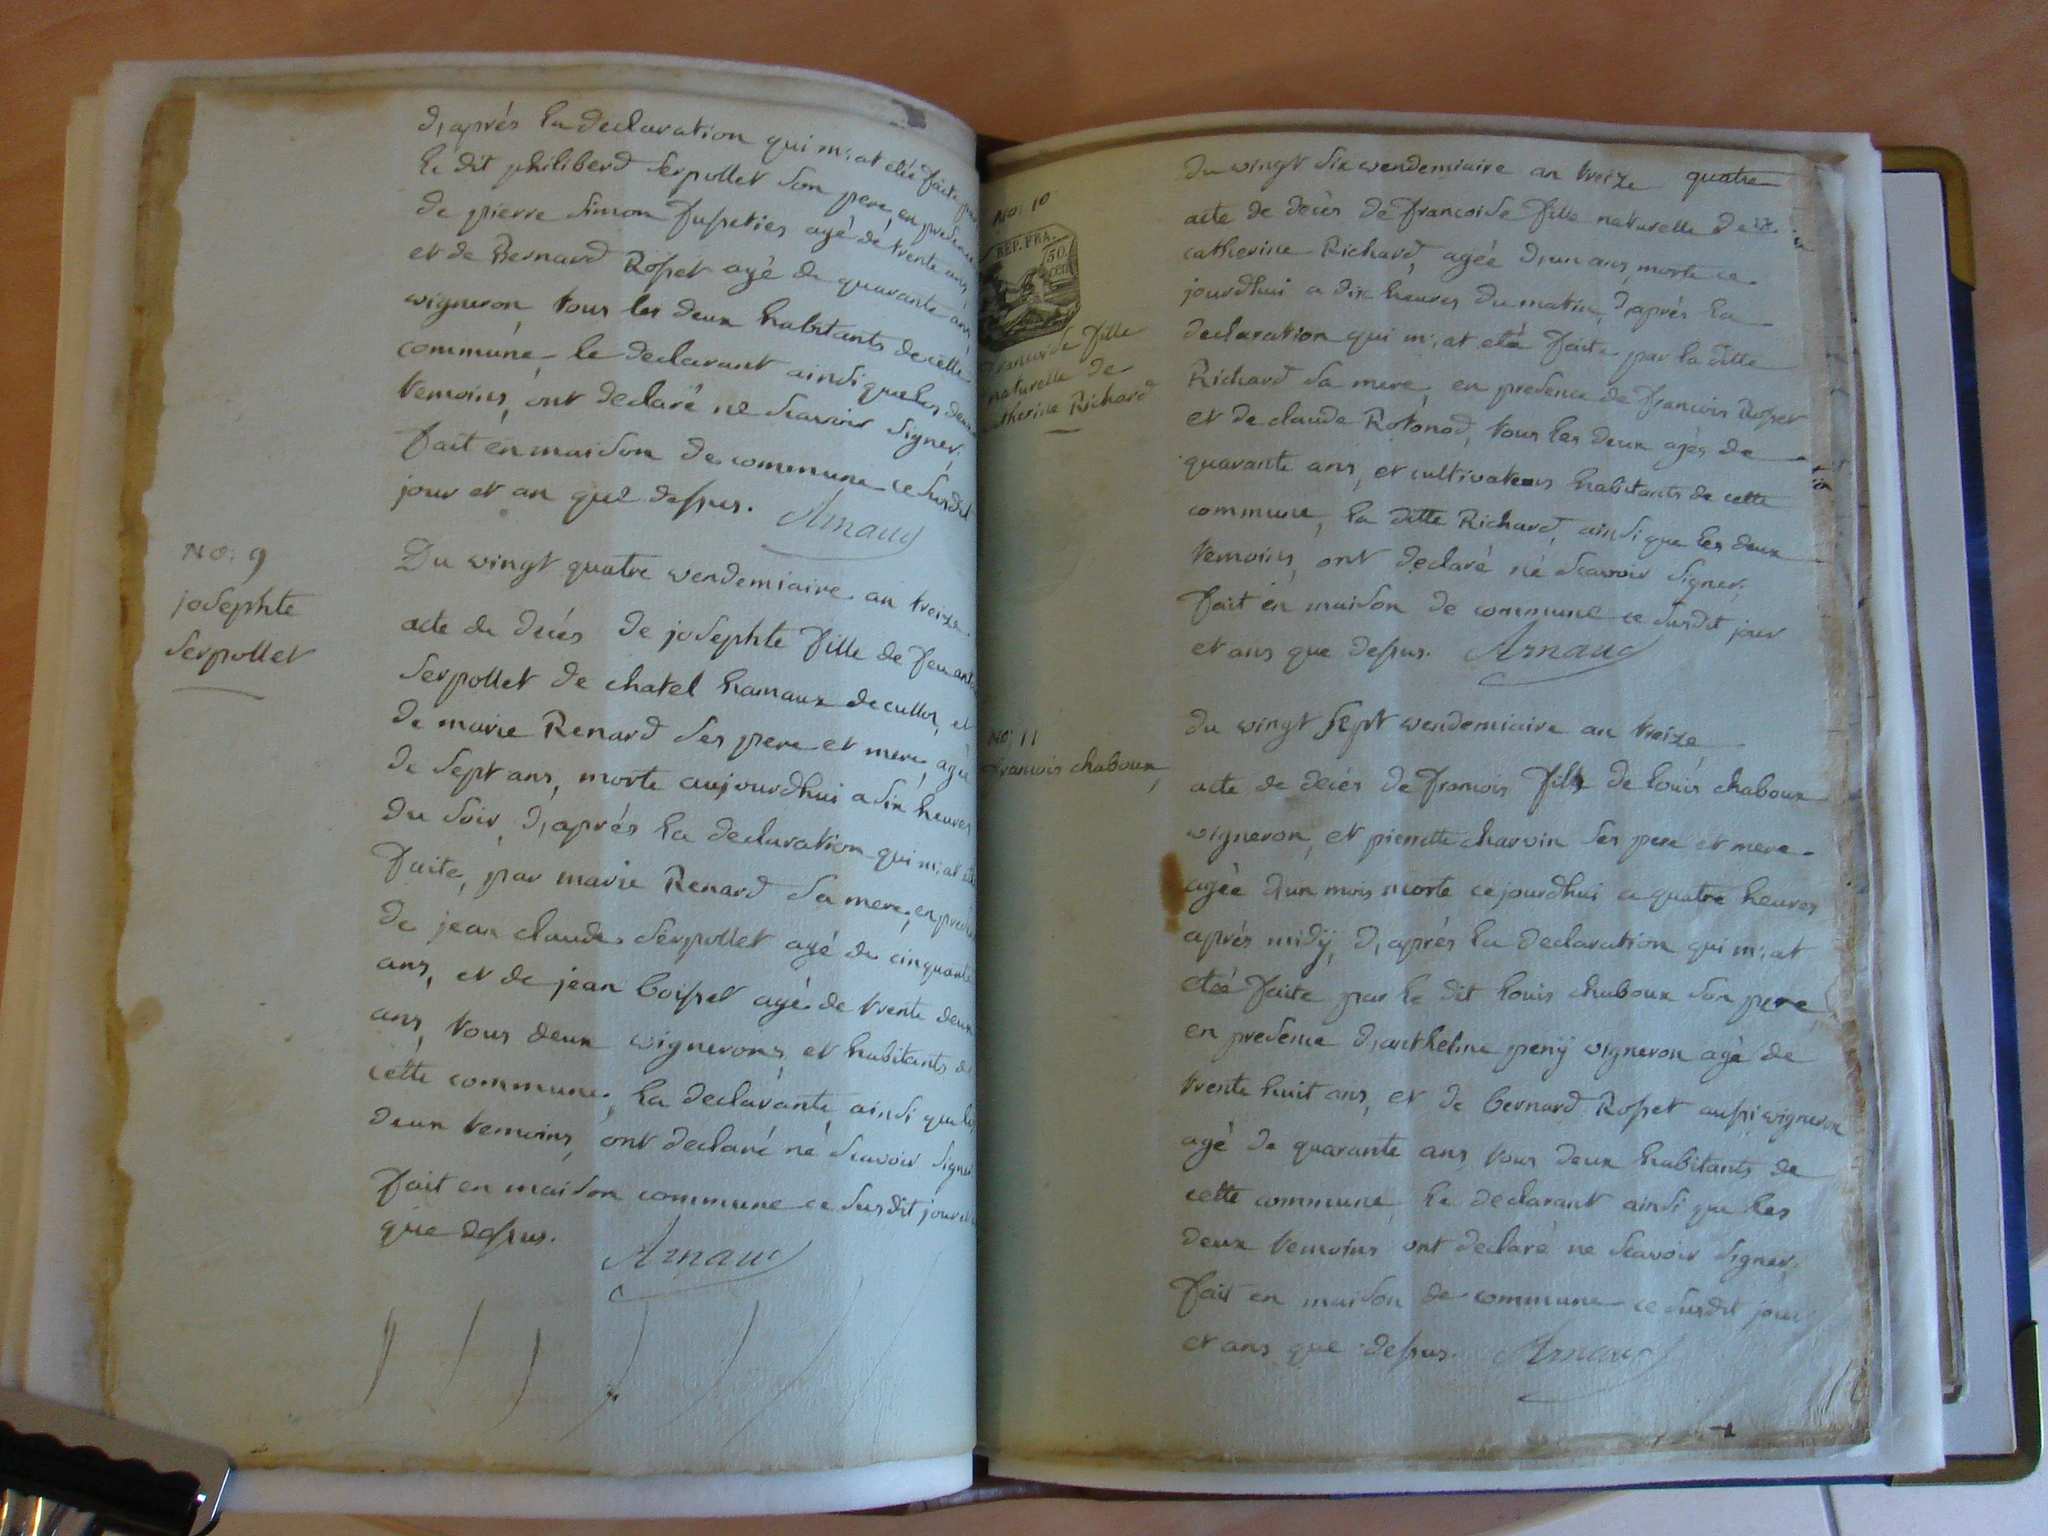 d,aprés la declaration qui m;at etée faite par
le dit philiberd Serpollet Son pere en presence
de pierre Simon agé de trente ans,
et de Bernard Rosset agé de quarante ans,
wigneron, tous les deux habitants de cette
commune, le declarant ainsi que les deux
temoins, ont declaré né Scavoir Signer,
fait en maison de commune ce Susdit
jour et an que dessus. Arnaud
No: 9
josephte
Serpollet
Du wingt quatre wendemiaire an treize
acte de decés de josephte fille de feu
Serpollet de chatel hamaux de culloz, et
de marie Renard Ses pere et mere, agée
de Sept ans, morte aujourdhui a Six heures
du Soir, d,aprés la declaration qui m;at
faite, par marie Renard Sa mere, en
de jean claude Serpollet agé de cinquante
ans, et de jean boisset agé de trente deux
ans, tous deux wignerons, et habitants de
cette commune, la declarante, ainsi que les
deux temoins, ont declaré né Scavoir Signer
fait en maison commune ce Susdit jour et
que dessus.
Arnaud
No: 10
REP. FRA.
50
CEN.
francoise fille
naturelle de
catherine Richard
du wingt Six wendemiaire an treize quatre
acte de decès de francoise fille naturelle de
catherine Richard, agée d,un ans, morte ce
jourdhui a dix heures du matin, d,aprés la
declaration qui m;at etée faite par la ditte
Richard Sa mere, en presence de francois Rosset
et de claude Rotonod, tous les deux agés de
quarante ans, et cultivateurs habitants de cette
commune, la ditte Richard, ainsi que les deux
temoins, ont declaré né Scavoir Signer,
fait en maison de commune ce Susdit jour
et ans que dessus. Arnaud
No: 11
francois chaboux
du wingt Sept wendemiaire an treize
acte de decés de francois fils de louis chaboux
wigneron, et pierrette charvin Ses pere et mere
agée d,un mois morte cejourdhui a quatre heures
aprés midÿ, d,aprés la declaration qui m;at
etée faite par le dit louis chaboux Son pere
en presence d,anthelme penÿ wigneron agé de
trente huit ans, et de bernard Rosset aussi wigneron
agé de quarante ans, tous deux habitants de
cette commune, le declarant ainsi que les
deux temoins ont declaré ne Scavoir Signer,
fait en maison de commune ce Susdit jour
et ans que dessus. Arnaud